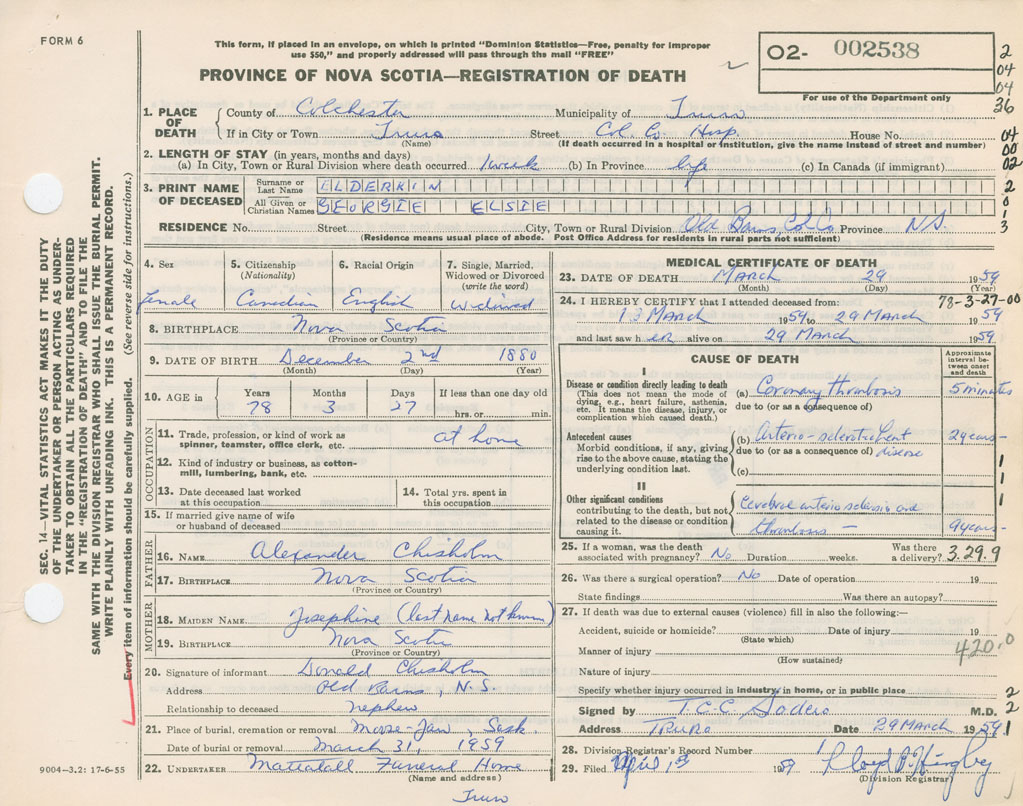 FORM 6
This form, if placed in an envelope, on which is printed "Dominion Statistics—Free, penalty for improper
use $50," and properly addressed will pass through the mail "FREE"
PROVINCE OF NOVA SCOTIA—REGISTRATION OF DEATH
O2- 002538
For use of the Department only
2
04
04
36
04
00
02
2
0
1
3
SEC. 14—VITAL STATISTICS ACT MAKES IT THE DUTY
OF THE UNDERTAKER OR PERSON ACTING AS UNDER-
TAKER TO OBTAIN ALL THE PARTICULARS REQUIRED
IN THE "REGISTRATION OF DEATH" AND TO FILE THE
SAME WITH THE DIVISION REGISTRAR WHO SHALL ISSUE THE BURIAL PERMIT.
WRITE PLAINLY WITH UNFADING INK. THIS IS A PERMANENT RECORD.
Every item of information should be carefully supplied. (See reverse side for instructions.)
1. PLACE OF DEATH County of Colchester Municipality of Truro
If in City or Town Truro Street Col. Co. Hosp. House No.
(Name) (If death occurred in a hospital or institution, give the name instead of street and number)
2. LENGTH OF STAY (in years, months and days)
(a) In City, Town or Rural Division where death occurred 1 week (b) In Province life (c) In Canada (if immigrant)
3. PRINT NAME OF DECEASED Surname or Last Name ELDERKIN
All Given or Christian Names GEORGIE ELSIE
RESIDENCE No. Street City, Town or Rural Division Old Barns, Col. Co Province N.S.
(Residence means usual place of abode. Post Office Address for residents in rural parts not sufficient)
4. Sex 5. Citizenship (Nationality) 6. Racial Origin 7. Single, Married, Widowed or Divorced (write the word)
female Canadian English Widowed
8. BIRTHPLACE Nova Scotia
(Province or Country)
9. DATE OF BIRTH December 2nd 1880
(Month) (Day) (Year)
10. AGE in Years Months Days If less than one day
78 3 27 hrs. or min.
OCCUPATION
11. Trade, profession, or kind of work as spinner, teamster, office clerk, etc. at home
12. Kind of industry or business, as cotton-mill, lumbering, bank, etc.
13. Date deceased last worked at this occupation 14. Total yrs. spent in this occupation
15. If married give name of wife or husband of deceased
FATHER
16. NAME Alexander Chisholm
17. BIRTHPLACE Nova Scotia
(Province or Country)
MOTHER
18. MAIDEN NAME Josephine (last name not known)
19. BIRTHPLACE Nova Scotia
(Province or Country)
20. Signature of informant Donald Chisholm
Address Old Barns, N.S.
Relationship to deceased nephew
21. Place of burial, cremation or removal Moose-Jaw, Sask.
Date of burial or removal March 31, 1959
22. UNDERTAKER Mattatall Funeral Home
(Name and address)
Truro
9004-3.2: 17-6-55
MEDICAL CERTIFICATE OF DEATH
23. DATE OF DEATH March 29 1959
(Month) (Day) (Year)
24. I HEREBY CERTIFY that I attended deceased from: 78-3-27-00
13 March 1959 to 29 March 1959
and last saw her alive on 29 March 1959
CAUSE OF DEATH
Approximate interval between onset and death
I
Disease or condition directly leading to death
(This does not mean the mode of dying, e.g., heart failure, asthenia, etc. It means the disease, injury, or complication which caused death.)
(a) Coronary thrombosis 5 minutes
due to (or as a consequence of)
Antecedent causes
Morbid conditions, if any, giving rise to the above cause, stating the underlying condition last.
(b) Arterio-sclerotic heart 2 years-
due to (or as a consequence of) disease
(c)
1
1
II
Other significant conditions
contributing to the death, but not related to the disease or condition causing it.
Cerebral arterio sclerosis and
thrombosis - 9 years-
25. If a woman, was the death associated with pregnancy? No Duration weeks. Was there a delivery? 3.29.9
26. Was there a surgical operation? No Date of operation 19
State findings Was there an autopsy?
27. If death was due to external causes (violence) fill in also the following:—
Accident, suicide or homicide? Date of injury 19
(State which)
Manner of injury 420.0
(How sustained)
Nature of injury
Specify whether injury occurred in industry, in home, or in public place 2
Signed by T.C.C. Sodero M.D. 2
Address Truro Date 29 March 1959 1
28. Division Registrar's Record Number 1
29. Filed April 1st 1959
(Division Registrar)